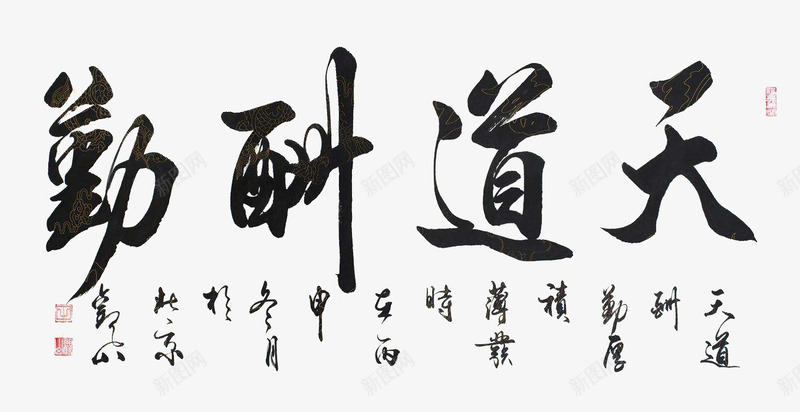 天道酬勤
天道
酬
勤厚
積
薄發
時
在丙
申
冬月
於
北京
新图网